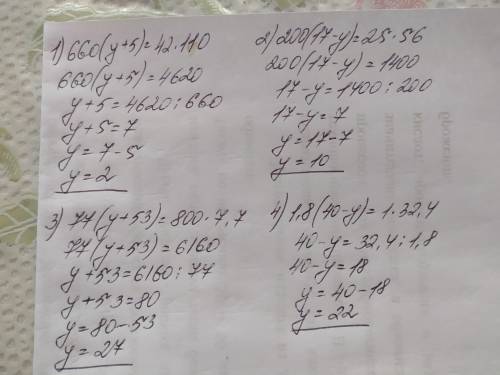 1) 660(y+5)=42·110
660(y+5)=4620
y+5=4620:660
y+5=7
y=7-5
y=2
2) 200(17-y)=25·56
200(17-y)=1400
17-y=1400:200
17-y=7
y=17-7
y=10
3) 77(y+53)=800·7,7
77(y+53)=6160
y+53=6160:77
y+53=80
y=80-53
y=27
4) 1,8(40-y)=1·32,4
40-y=32,4:1,8
40-y=18
y=40-18
y=22